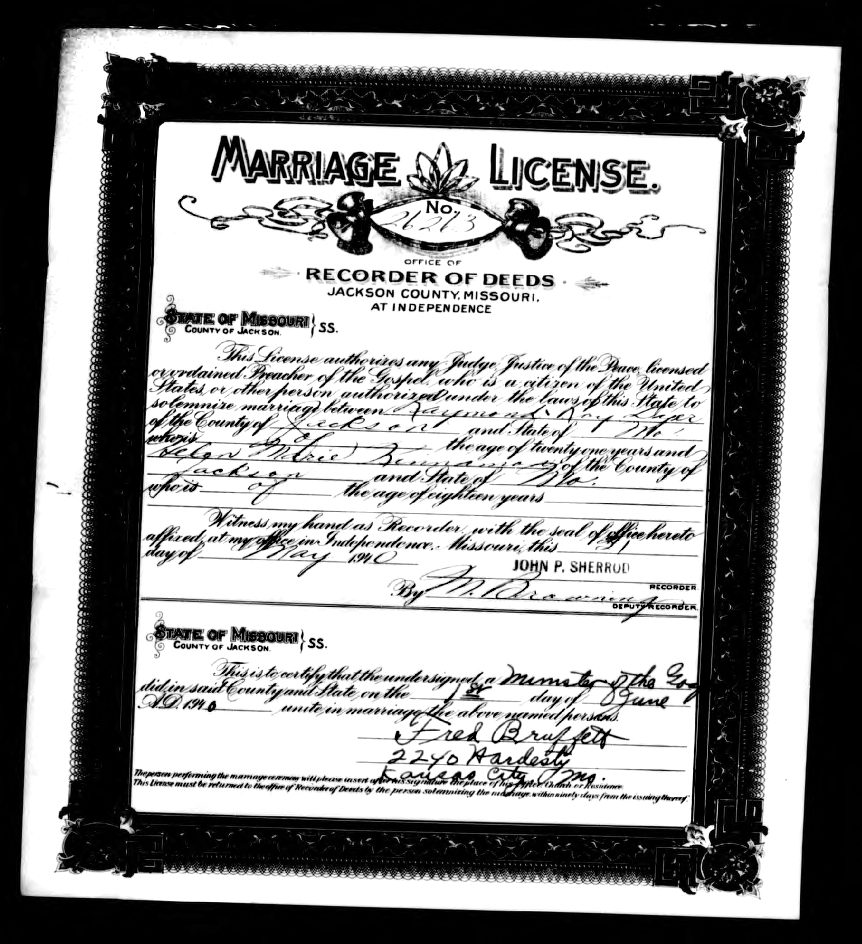 MARRIAGE LICENSE.
No.
OFFICE OF
RECORDER OF DEEDS
JACKSON COUNTY, MISSOURI,
AT INDEPENDENCE
STATE OF MISSOURI
COUNTY OF JACKSON. } SS.
This License authorizes any Judge, Justice of the Peace, licensed
or ordained Preacher of the Gospel, who is a citizen of the United
States, or other person authorized under the laws of this State to
solemnize marriage between Raymond Ray
of the County of Jackson and State of Mo.
who is of the age of twenty one years and
Helen Marie of the County of
Jackson and State of Mo.
who is of the age of eighteen years
Witness my hand as Recorder, with the seal of office hereto
affixed, at my office in Independence, Missouri, this 31
day of May 1940
JOHN P. SHERROD
RECORDER
By M. Browning
DEPUTY RECORDER.
STATE OF MISSOURI
COUNTY OF JACKSON. } SS.
This is to certify that the undersigned, a Minister of the
did in said County and State on the 1st day of June
A.D. 1940 unite in marriage the above named persons.
Fred Bruffett
2240 Hardesty
Kansas City, Mo.
The person performing the marriage ceremony will please insert after his signature the place of his Office, Church or Residence.
This License must be returned to the office of Recorder of Deeds by the person solemnizing the marriage within ninety days from the issuing thereof.